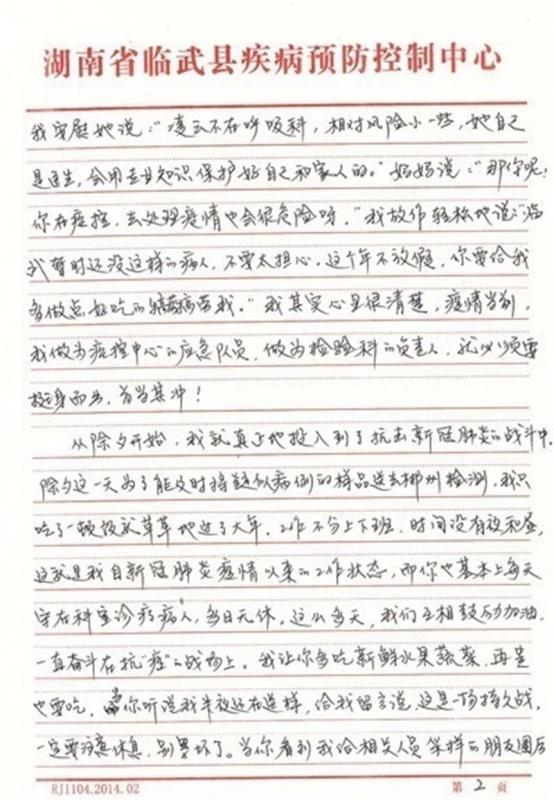 湖南省临武县疾病预防控制中心
我安慰她说："凌云不在呼吸科，相对风险小一些，她自己
是医生，会用专业知识保护好自己和家人的。"妈妈说："那你呢？
你在疾控，去处理疫情也会很危险呀。"我故作轻松地说："临
武暂时还没这样的病人，不要太担心。这个年不放假，你要给我
多做点好吃的犒劳我。"我其实心里很清楚，疫情当前，
我做为疾控中心的应急队员，做为检验科的负责人，就必须要
挺身而出，首当其冲！
从除夕开始，我就真正地投入到了抗击新冠肺炎的战斗中。
除夕这一天为了能及时将疑似病例的样品送去郴州检测，我只
吃了一顿饭就草草地过了大年。工作不分上下班，时间没有夜和昼，
这就是我自新冠肺炎疫情以来的工作状态，而你也基本上每天
守在科室诊疗病人，全日无休。这么多天，我们互相鼓励加油，
一直奋斗在抗"疫"的战场上。我让你多吃新鲜水果蔬菜，再忙
也要吃，当你听说我半夜还在送样，给我留言说，这是一场持久战，
一定要注意休息，别累坏了。当你看到我给相关人员采样的朋友圈后
RJ1104.2014.02
第 2 页